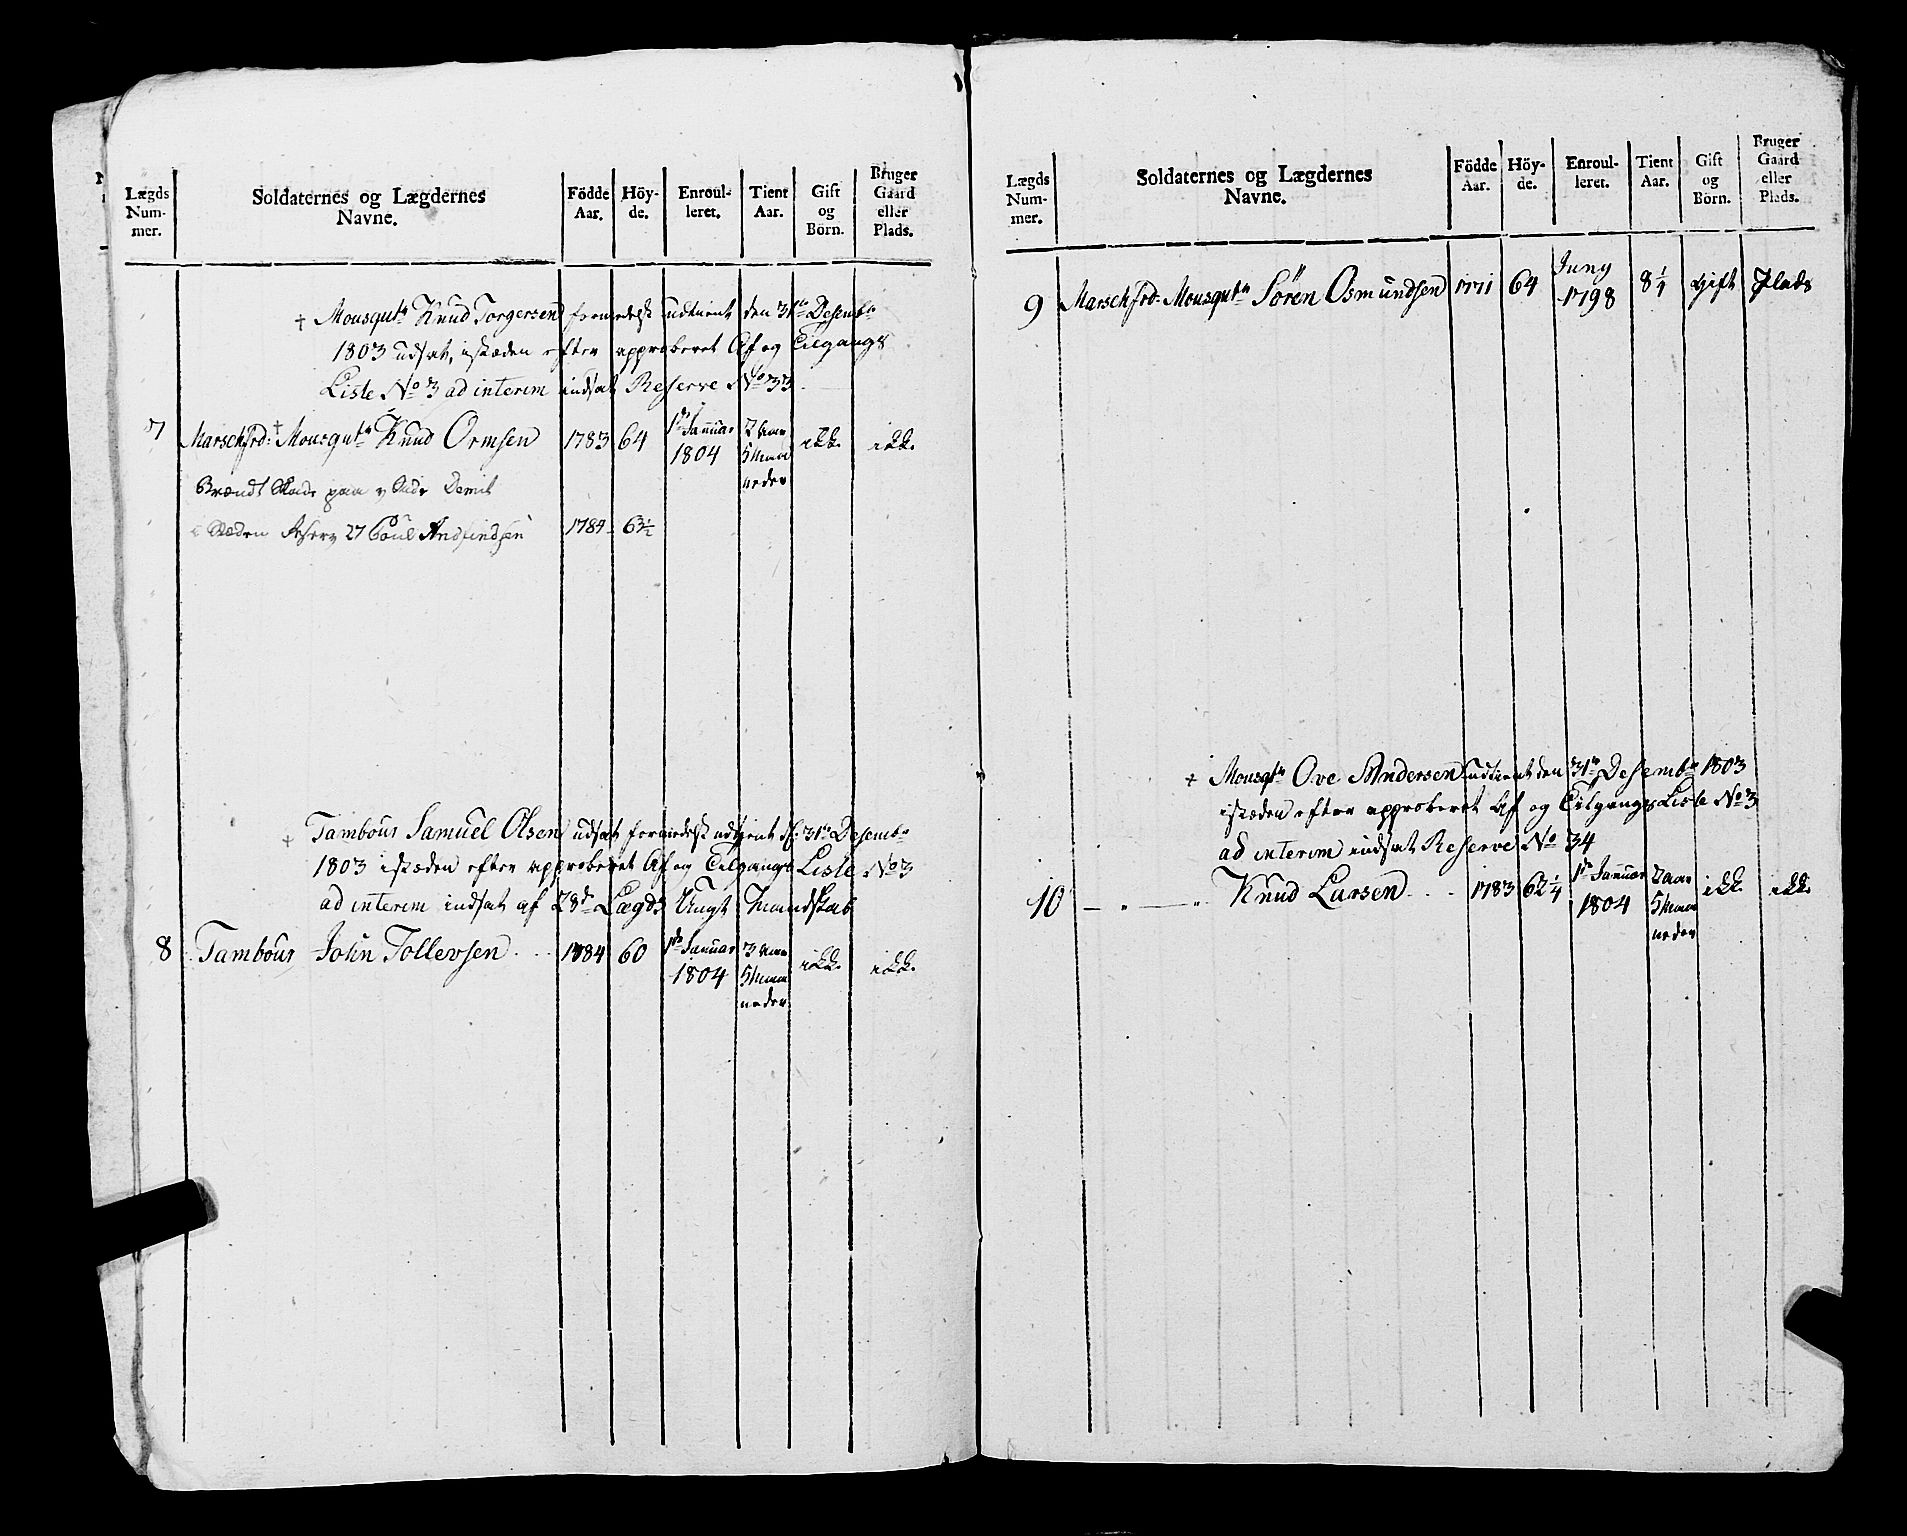 Lægds Num- mer. | Soldaternes og Lægdernes Navne. | Födde Aar. | Höy- de. | Enroul- leret. | Tient Aar. | Gift og Börn. | Bruger Gaard eller Plads.
† Mousqutr Knud Torgersen formedelst udtient den 31te Desembr
1803 udsat, istæden efter approberet Af og Tilgangs
Liste No 3 ad interim indsat Reserve No 33
7 Marschfrd: † Mousqutr Knud Ormsen 1783 64 1de Januar 1804 2 Aar 5 Maaneder ikke ikke
Brændt Skade paa Demit
Stæden Reserv 27 Poul Andfindsen 1784 63½
† Tambour Samuel Olsen udsat formedelst udtient d: 31te Desembr
1803 istæden efter approberet Af og Tilgangs Liste No 3
ad interim indsat af 28de Lægds Ungt Mandskab
8 Tambour John Tollevsen 1784 60 1de Januar 1804 3 Aar 5 Maaneder ikke ikke
Lægds Num- mer. | Soldaternes og Lægdernes Navne. | Födde Aar. | Höy- de. | Enroul- leret. | Tient Aar. | Gift og Börn. | Bruger Gaard eller Plads.
9 Marschfrd: Mousqutr Sören Osmundsen 1771 64 Juny 1798 8¼ Gift Plads
† Mousqtr Ove Andersen udtient den 31te Desembr 1803
istæden efter approberet Af og Tilgangs Liste No 3
ad interim indsat Reserve No 34
10 — " — " Knud Larsen 1783 62¼ 1de Januar 1804 2 Aar 5 Maaneder ikke ikke